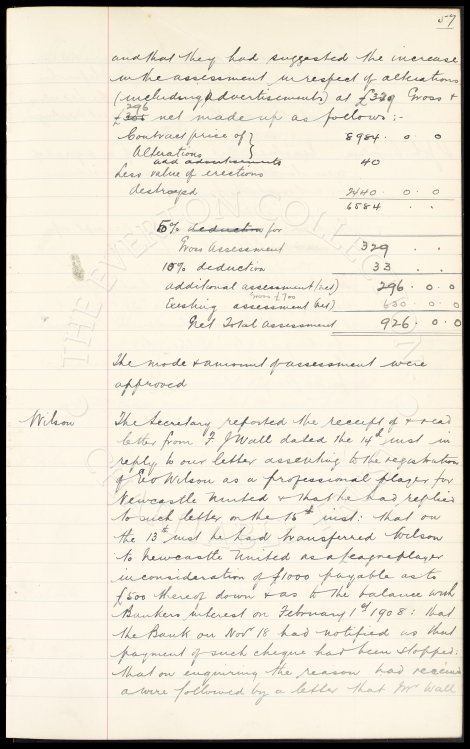 57
and that they had suggested the increase
in the assessment in respect of alterations
(including Advertisements) at £329 Gross &
296
£305 net made up as follows :-
Contract price of } 8984 . 0 . 0
Alterations
add advertisements 40
Less value of erections
destroyed 2440 . 0 . 0
6584 . .
5% deduction for
Gross Assessment 329 . .
10% deduction 33 . .
additional assessment (net) 296 . 0 . 0
Gross £700
Existing assessment (net) 630 . 0 . 0
Net Total assessment 926 . 0 . 0
The mode & amount of assessment were
approved
Wilson
The Secretary reported the receipt of & read
letter from F J Wall dated the 14th inst in
reply to our letter assenting to the registration
of Wilson as a professional player for
Newcastle United & that he had replied
to such letter on the 15th inst: that on
the 13th inst he had transferred Wilson
to Newcastle United as a league player
in consideration of £1000 payable as to
£500 thereof down & as to the balance with
Bankers interest on February 1st 1908 : that
the Bank on Nov 18 had notified us that
payment of such cheque had been stopped:
that on enquiring the reason had received
a wire followed by a letter that Mr Wall
THE EVERTON COLLECTION